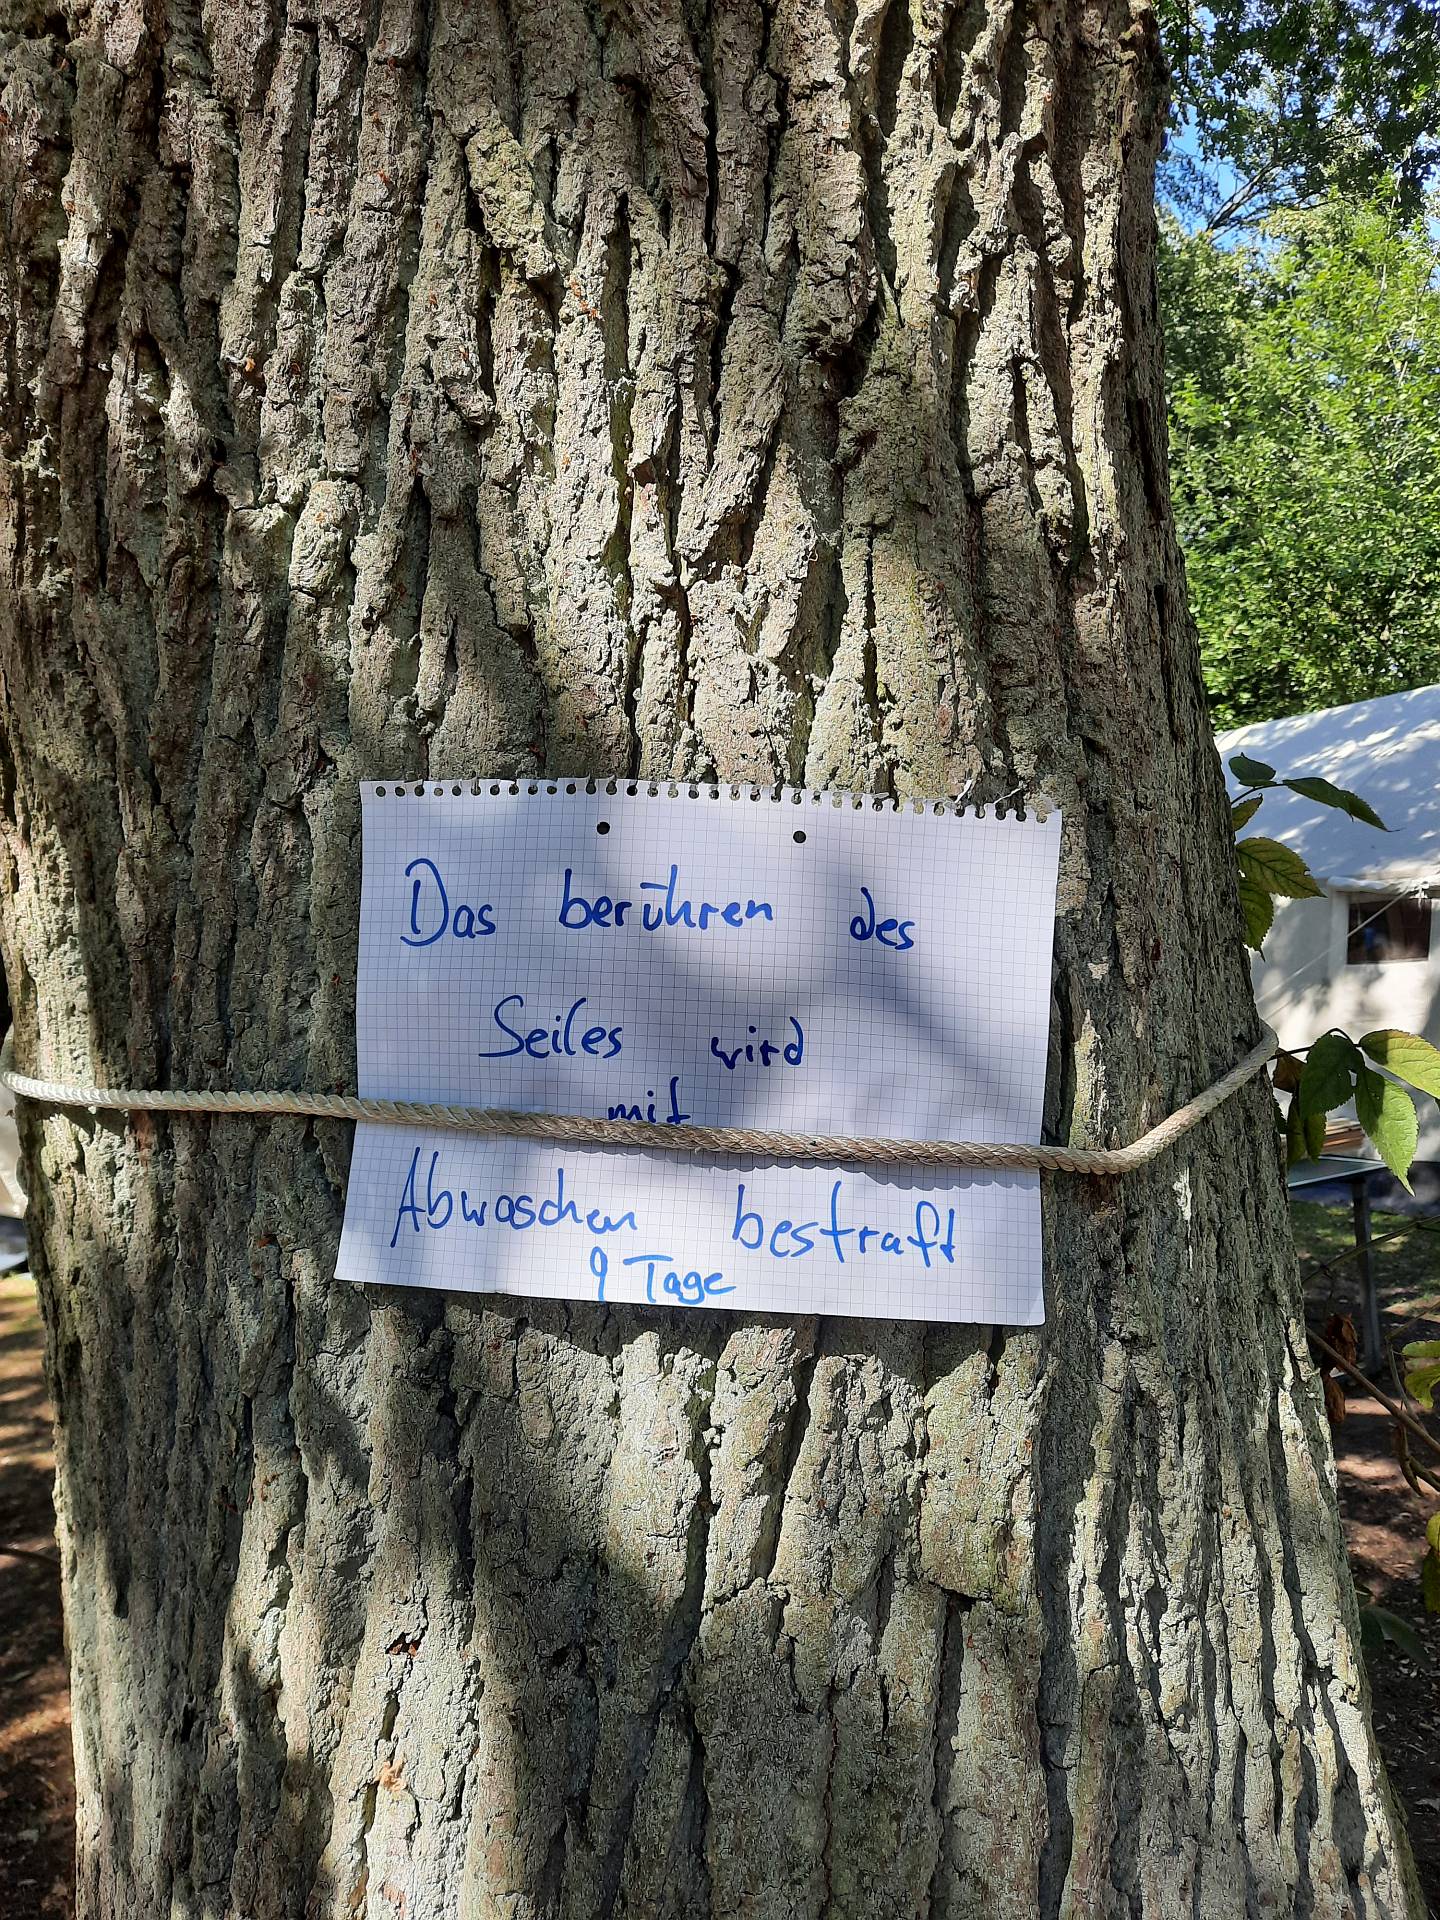 Das berühren des
Seiles wird
mit
Abwaschen bestraft
9 Tage